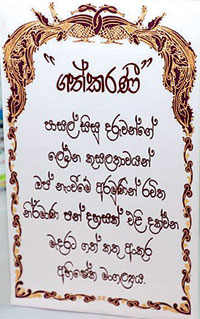 "ගත්කරණී"
පාසල් සිසු දරුවන්ගේ
ලේඛන කුසලතාවයන්
ඔප් නැංවීමේ අරමුණින් රචිත
නිර්මාණ පන් දහසක් එළි දක්වන
මදාරා ගත් කතු
අභිෂේක මංගල්‍යය.